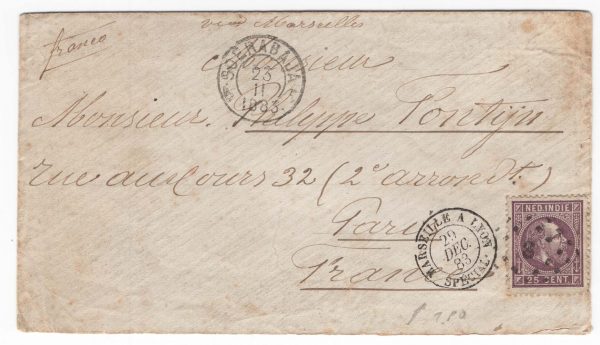 franco
via Marseilles
SOERABAIJA
23
11
1883
Monsieur
Monsieur Philippe Pontijn
rue aux Ours 32 (2e arrondt.)
Paris
France
MARSEILLE A LYON
29
DEC.
83
SPECIAL
NED. INDIE
25 CENT.